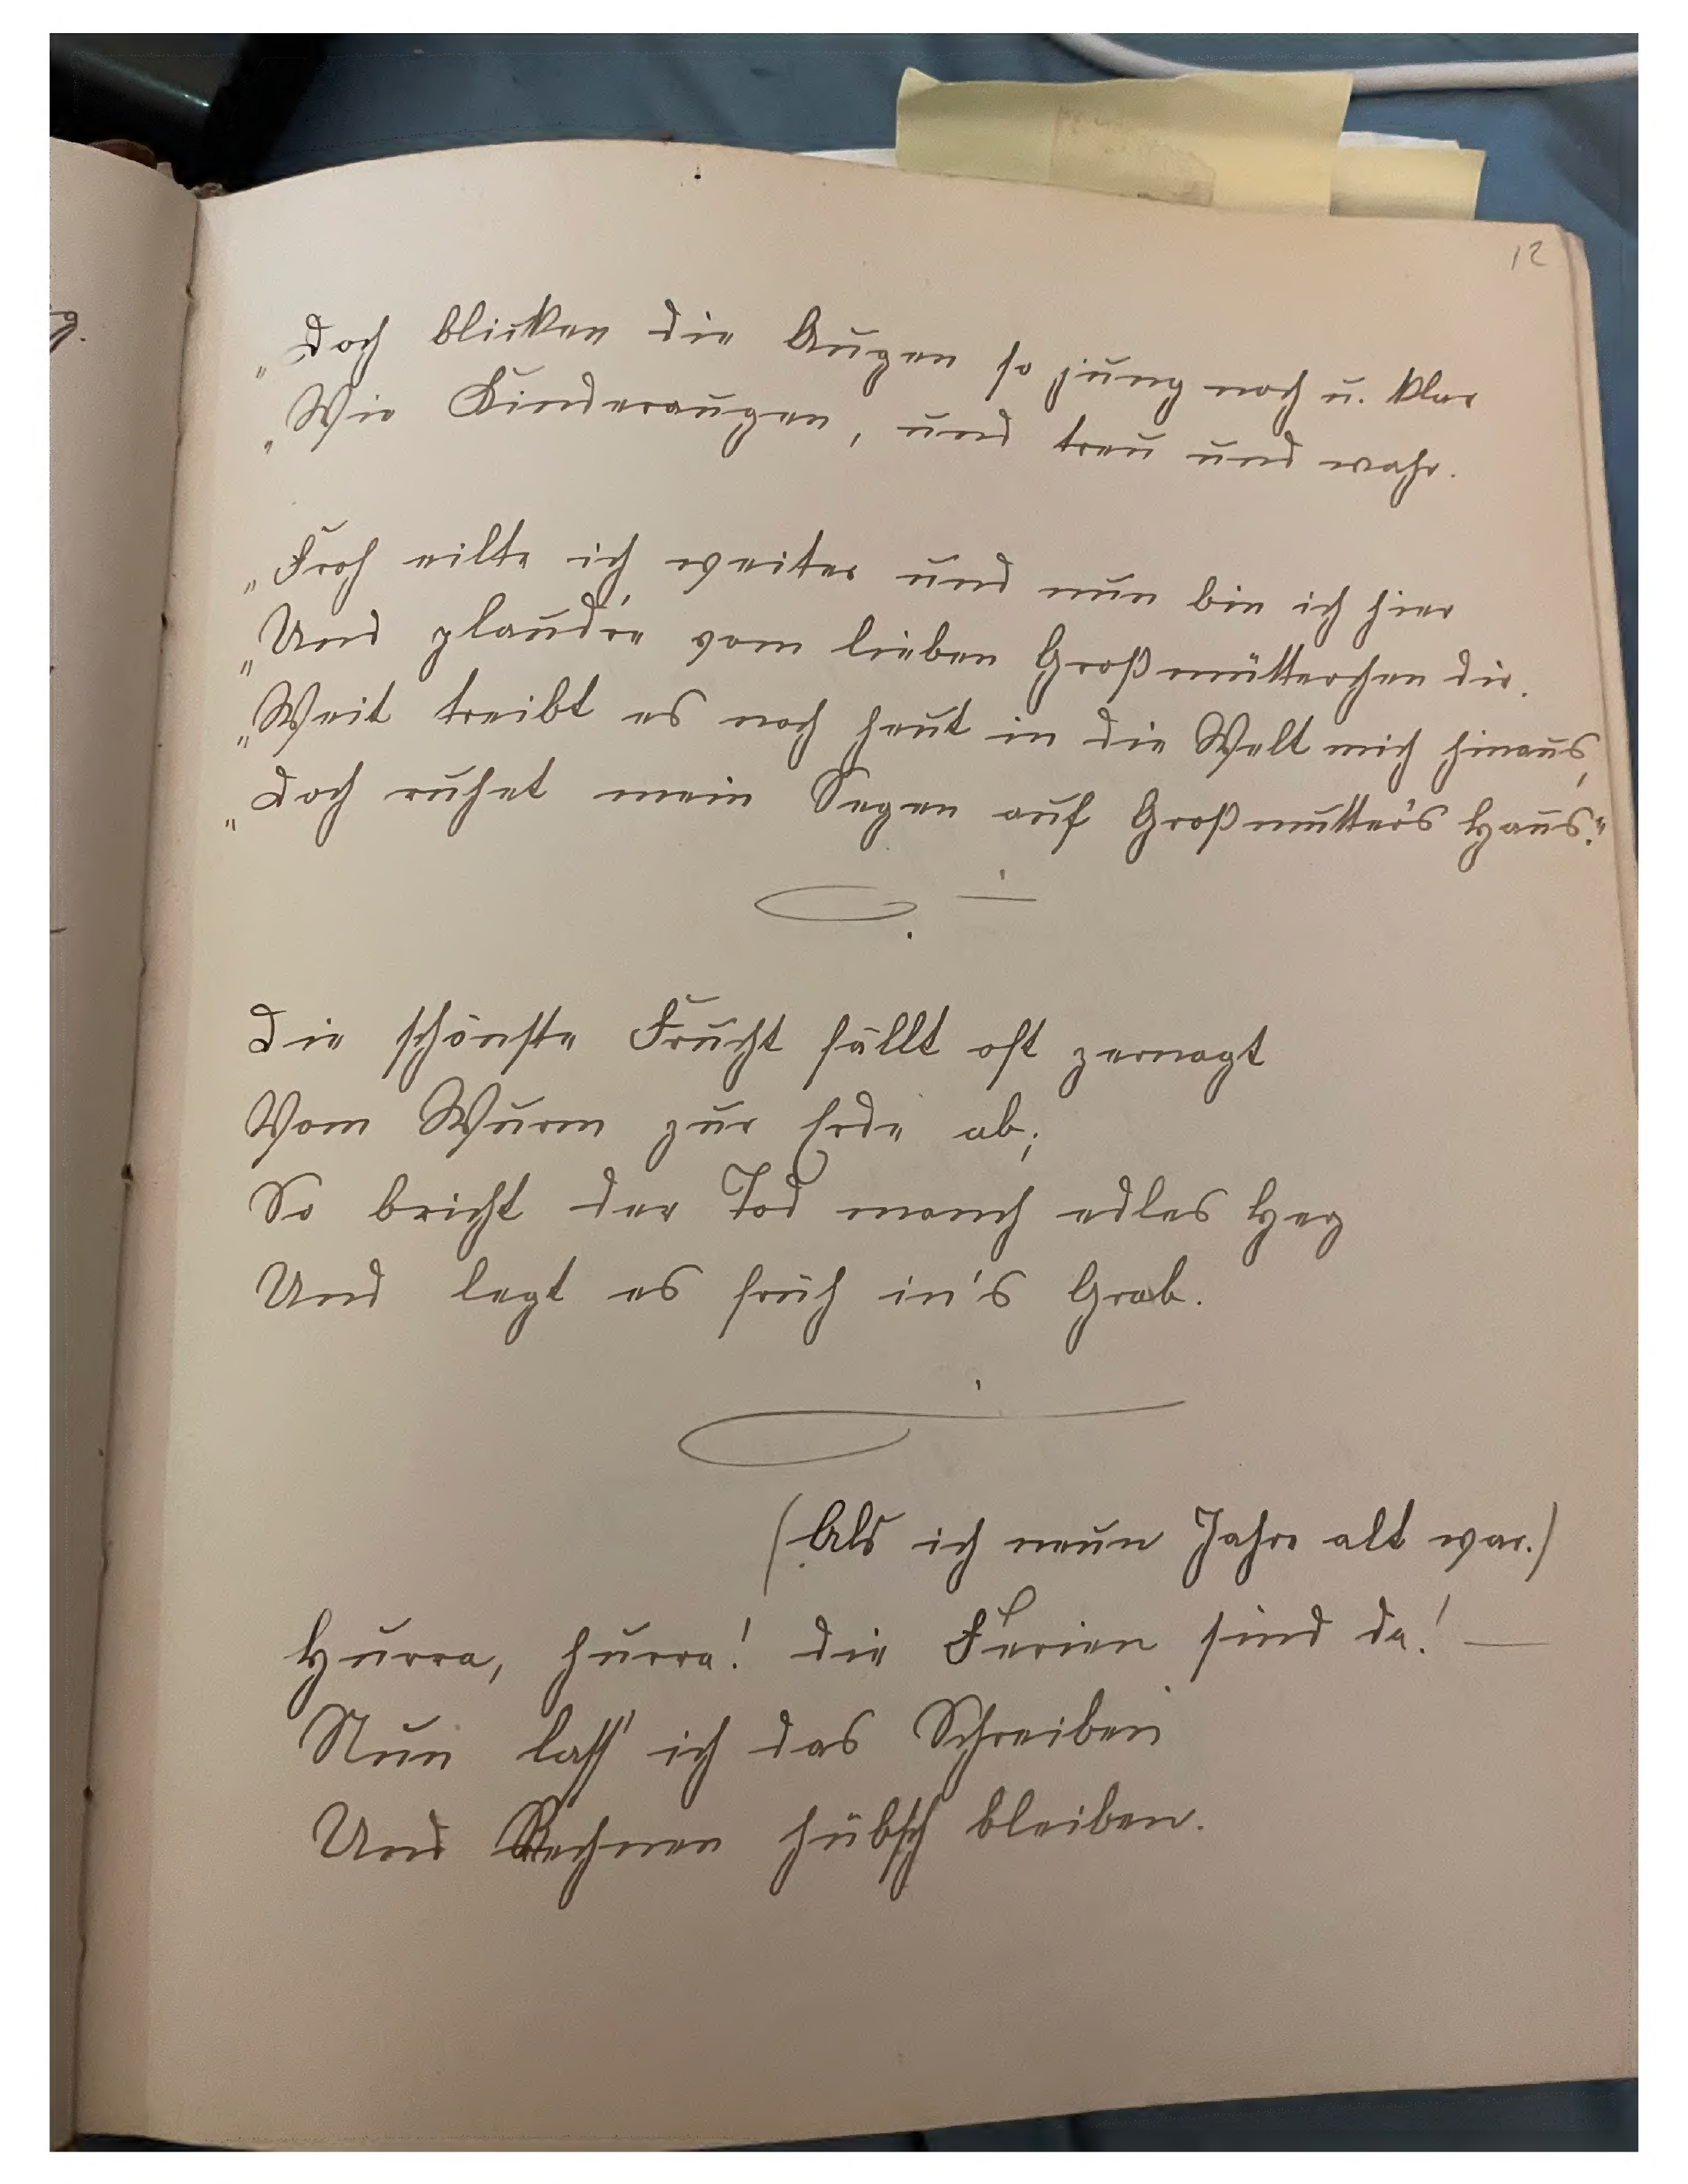 12
„Doch blicken die Augen so jung noch u. klar
„Wie Kinderaugen, und treu und wahr.
„Froh eilte ich weiter und nun bin ich hier
„Und plaud're vom lieben Großmütterchen dir.
„Weit treibt es noch heut in die Welt mich hinaus,
„Doch ruhet mein Segen auf Großmutter's Haus.“
Die schönste Frucht fällt oft zernagt
Vom Wurm zur Erde ab;
So bricht der Tod manch edles Herz
Und legt es früh in's Grab.
(Als ich neun Jahre alt war.)
Hurra, hurra! die Ferien sind da! —
Nun lass' ich das Schreiben
Und Rechnen hübsch bleiben.